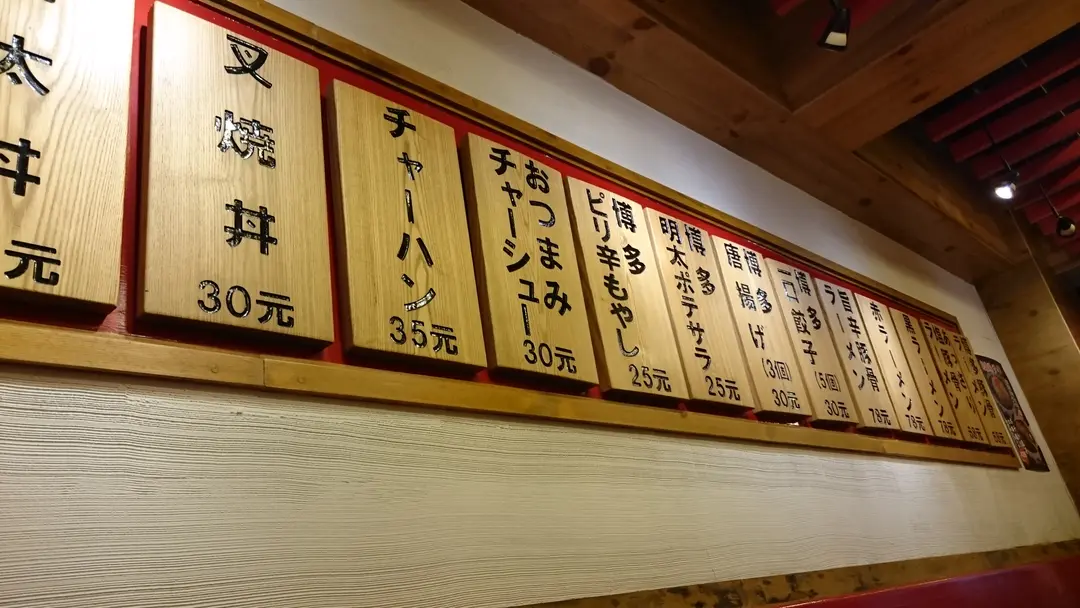 太丼
元
叉焼丼
30元
チャーハン
35元
おつまみ
チャーシュー
30元
博多
ピリ辛もやし
25元
博多
明太ポテサラ
25元
博多
唐揚げ
(3個)
30元
博多
一口餃子
(5個)
30元
旨辛豚骨
ラーメン
78元
赤ラーメン
78元
黒ラーメン
78元